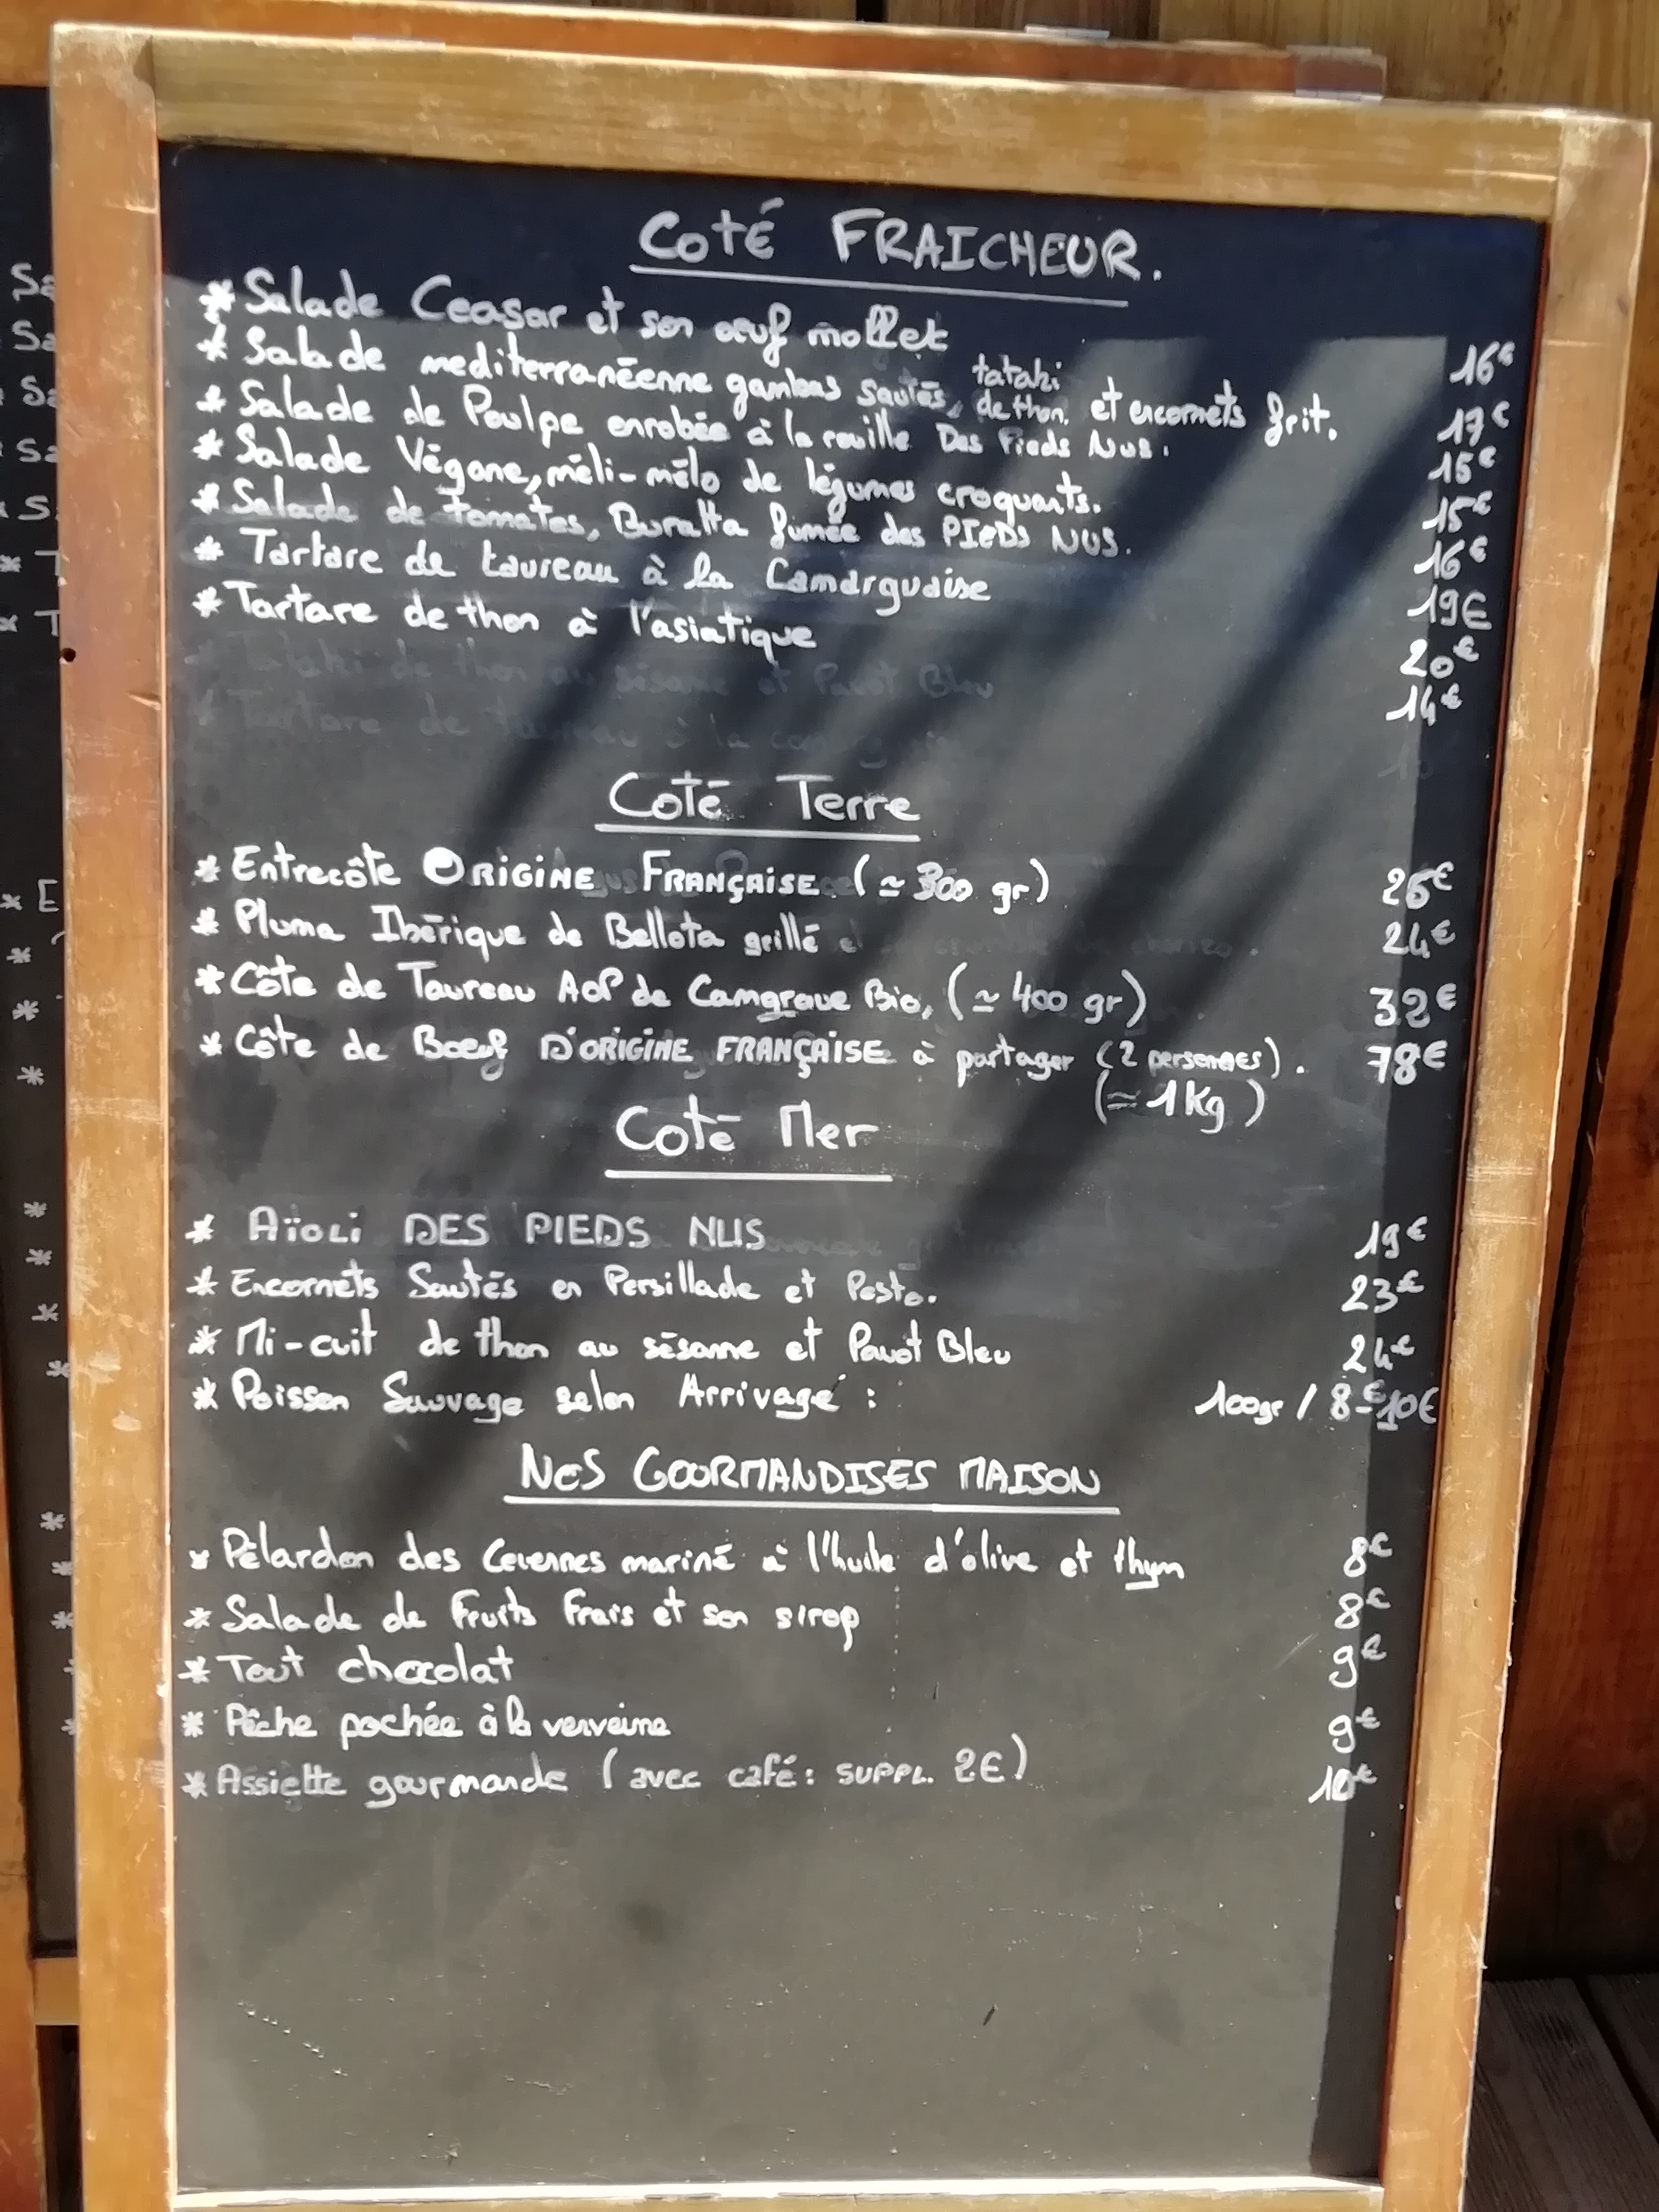 COTÉ FRAICHEUR.
* Salade Ceasar et son œuf mollet 16€
* Salade mediterranéenne gambas sautés, tataki de thon, et encornets frit. 17€
* Salade de Poulpe enrobée à la rouille Des Pieds Nus. 15€
* Salade Végane, méli-mélo de légumes croquants. 15€
* Salade de tomates, Buratta fumée des PIEDS NUS. 16€
* Tartare de taureau à la Camarguaise 19€
* Tartare de thon à l'asiatique 20€
14€
Coté Terre
* Entrecôte ORIGINE FRANÇAISE (≃ 300 gr) 26€
* Pluma Ibérique de Bellota grillé 24€
* Côte de Taureau AOP de Camgraue Bio, (≃ 400 gr) 32€
* Côte de Bœuf D'ORIGINE FRANÇAISE à partager (2 personnes). 78€
(≃ 1Kg)
Coté Mer
* Aïoli DES PIEDS NUS 19€
* Encornets Sautés en Persillade et Pesto. 23€
* Mi-cuit de thon au sésame et Pavot Bleu 24€
* Poisson Sauvage selon Arrivage : 100gr / 8€-10€
NOS GOURMANDISES MAISON
* Pélardon des Cevennes mariné à l'huile d'olive et thym 8€
* Salade de Fruits Frais et son sirop 8€
* Tout chocolat 9€
* Pêche pochée à la verveine 9€
* Assiette gourmande (avec café: SUPPL. 2€) 10€